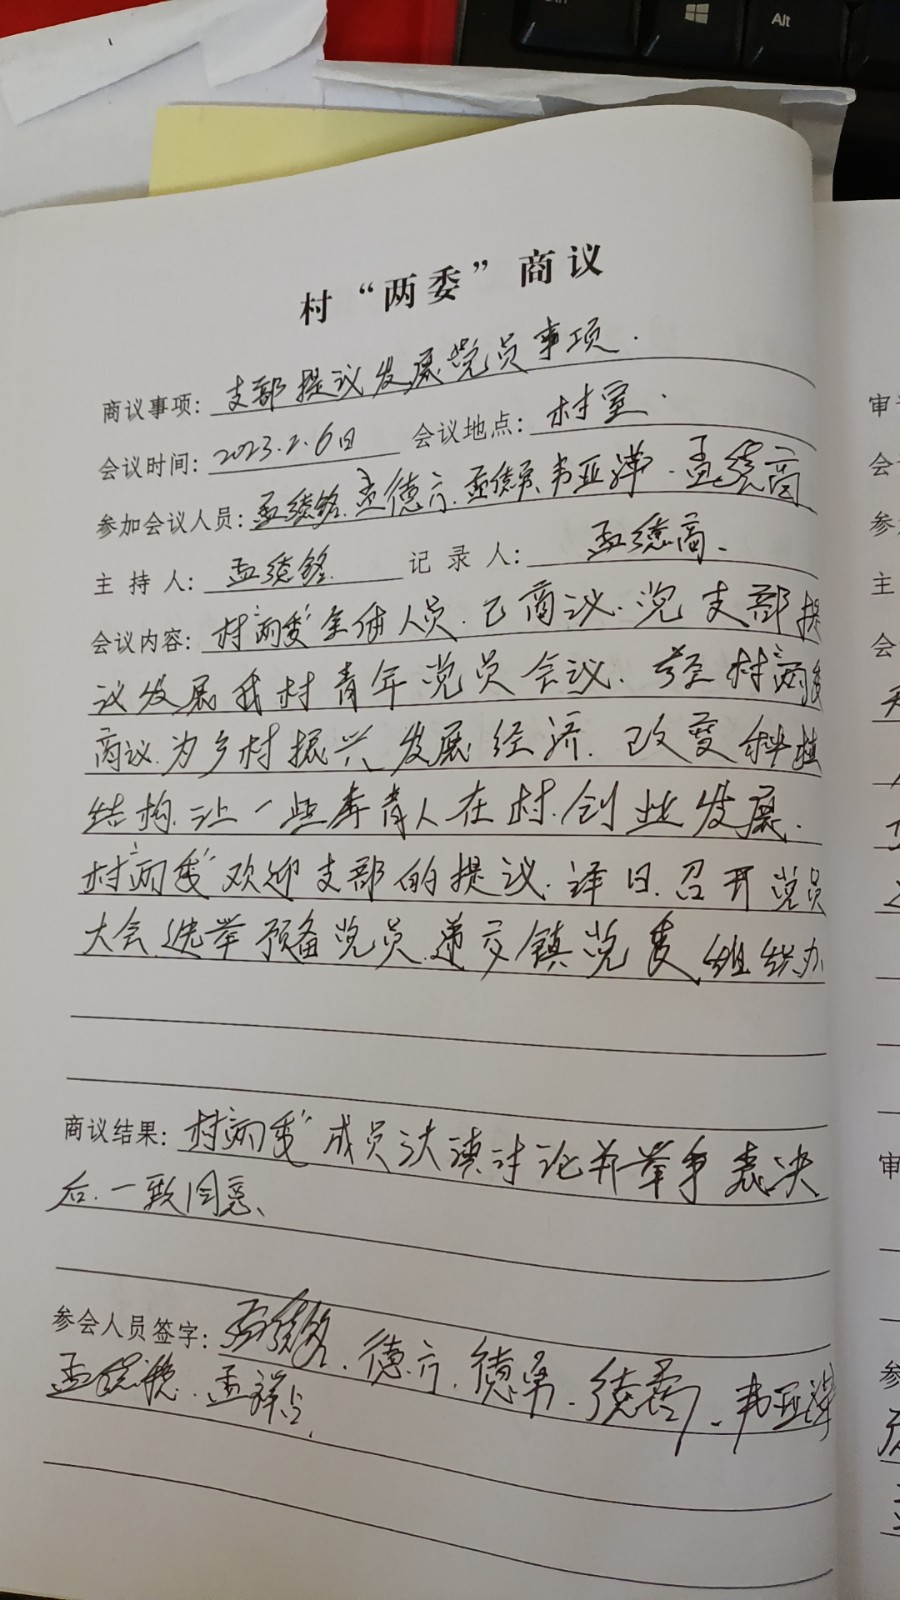 Ctrl
Alt
村“两委”商议
商议事项：支部提议发展党员事项.
会议时间：2023.2.6日 会议地点：村室.
参加会议人员：孟德铭.孟德六.孟德勇.韦亚萍.孟德高
主持人：孟德铭 记录人：孟德高.
会议内容：村“两委”全体人员.已商议.党支部提
议发展我村青年党员会议.经村“两委”
商议.为乡村振兴发展经济.改变种植
结构.让一些年青人在村.创业发展.
村“两委”欢迎支部的提议.译日.召开党员
大会.选举预备党员.递交镇党委组织办
商议结果：村“两委”成员认真讨论并举手表决
后.一致同意、
参会人员签字：孟德铭.德六.德勇.德高.韦亚萍
孟.孟祥
审
会
参
主
会
审
参